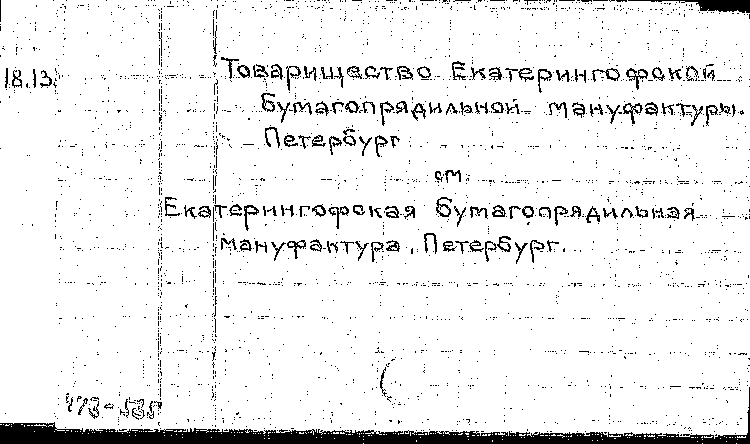 18.13. Товарищество Екатерингофской
бумагопрядильной мануфактуры.
Петербург
см.
Екатерингофская бумагопрядильная
мануфактура, Петербург.
473-535